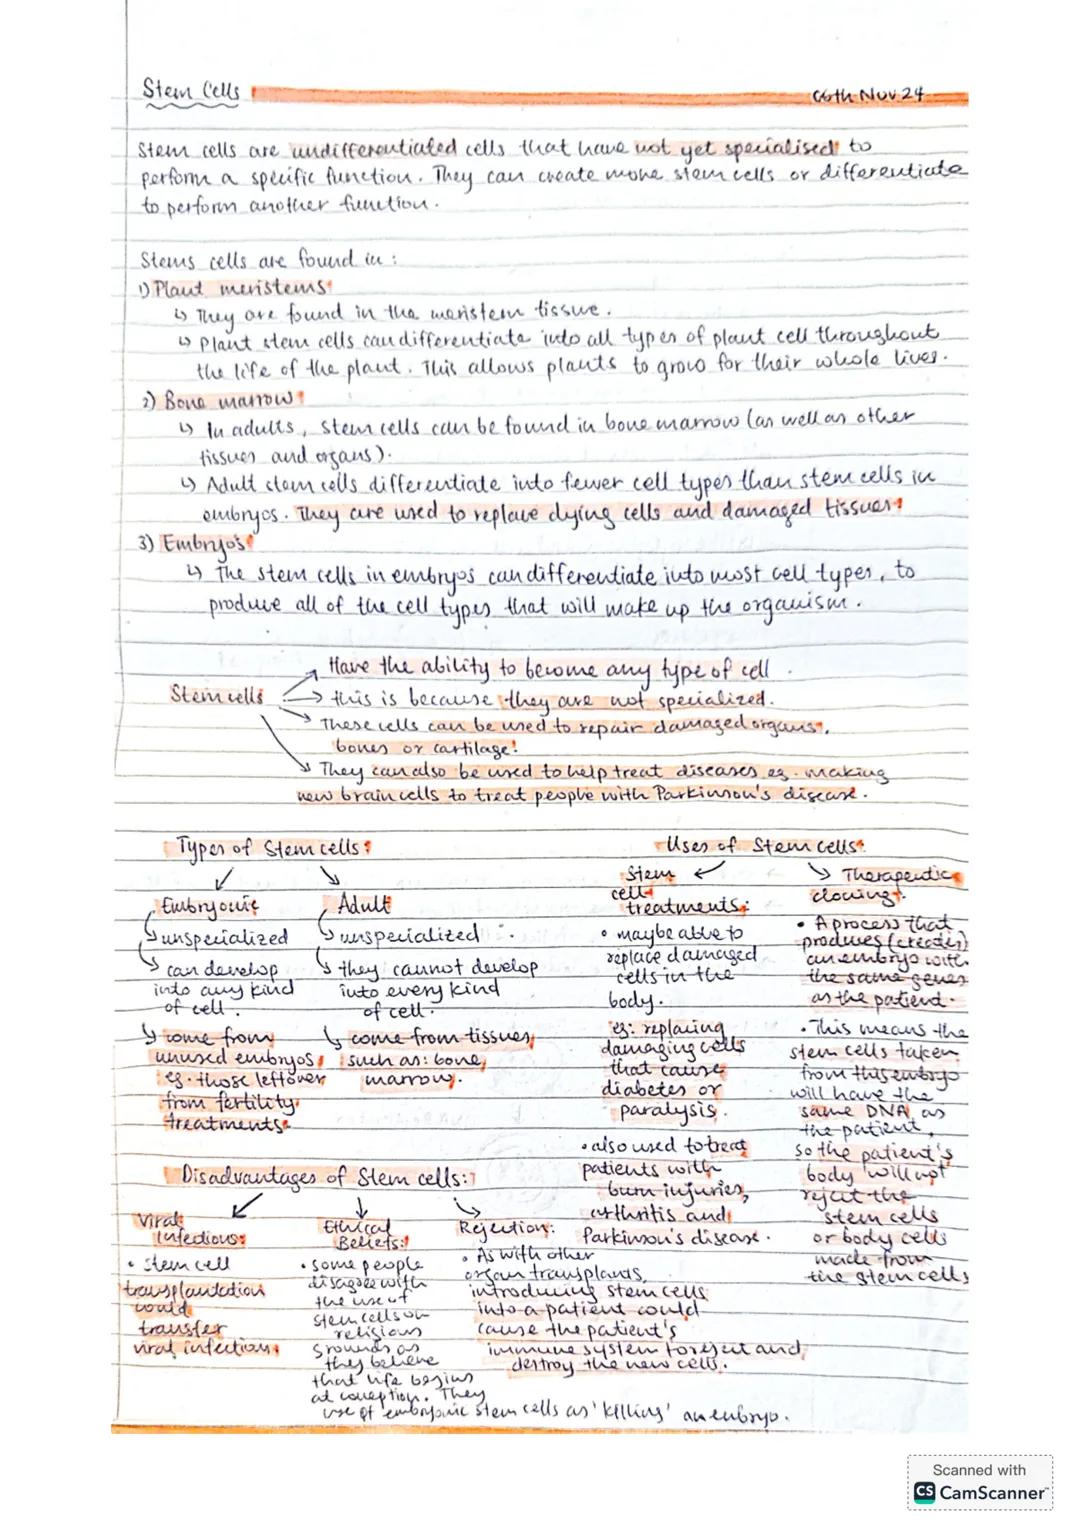 Stem Cells
06th Nov 24
Stem cells are undifferentiated cells that have not yet specialised to
perform a specific function. They can create more stem cells or differentiate
to perform another function.
Stems cells are found in :
1) Plant meristems
↳ They are found in the meristem tissue.
↳ Plant stem cells can differentiate into all types of plant cell throughout
the life of the plant. This allows plants to grow for their whole lives.
2) Bone marrow
↳ In adults, stem cells can be found in bone marrow (as well as other
tissues and organs).
↳ Adult stem cells differentiate into fewer cell types than stem cells in
embryos. They are used to replace dying cells and damaged tissues
3) Embryo's
↳ The stem cells in embryos can differentiate into most cell types, to
produce all of the cell types that will make up the organism.
Stem cells
→ Have the ability to become any type of cell.
→ this is because they are not specialized.
→ These cells can be used to repair damaged organs,
bones or cartilage.
→ They can also be used to help treat diseases eg. making
new brain cells to treat people with Parkinson's disease.
Types of Stem cells:
Embryonic
↳ unspecialized
↳ can develop
into any kind
of cell.
↳ come from
unused embryos,
eg. those leftover
from fertility
treatments
Adult
↳ unspecialized
↳ they cannot develop
into every kind
of cell.
↳ come from tissues,
such as: bone
marrow.
Uses of Stem cells:
Stem
cell
treatments:
• maybe able to
replace damaged
cells in the
body.
eg: replacing
damaging cells
that cause
diabetes or
paralysis.
• also used to treat
patients with
burn injuries,
arthritis and
Parkinson's disease.
Therapeutic
cloning:
• A process that
produces (creates)
an embryo with
the same genes
as the patient.
• This means the
stem cells taken
from this embryo
will have the
same DNA as
the patient,
so the patient's
body will not
reject the
stem cells
or body cells
made from
the stem cells
Disadvantages of Stem cells:
Viral
Infections:
• Stem cell
transplantation
could
transfer
viral infections
Ethical
Beliefs:
• some people
disagree with
the use of
stem cells on
religious
grounds as
they believe
that life begins
at conception. They
use of embryonic stem cells as 'killing' an embryo.
Rejection:
• As with other
organ transplants,
introducing stem cells
into a patient could
cause the patient's
immune system to reject and
destroy the new cells.
Scanned with
CS CamScanner